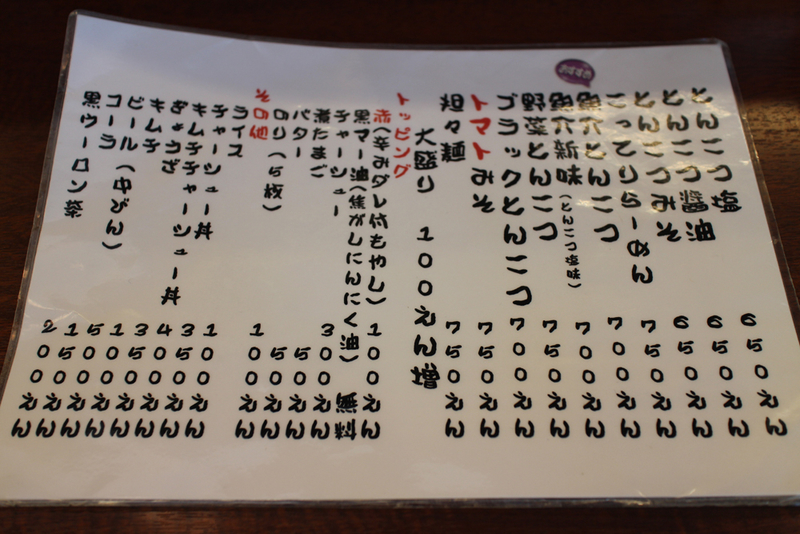 おすすめ
とんこつ塩 650えん
とんこつ醤油 650えん
とんこつみそ 650えん
こってりらーめん 750えん
魚介とんこつ 700えん
魚介新味(とんこつ塩味) 700えん
野菜とんこつ 750えん
ブラックとんこつ 700えん
トマトみそ 750えん
担々麺 750えん
大盛り 100えん増
トッピング
赤(辛みダレ付もやし) 100えん
黒マー油(焦がしにんにく油) 無料
チャーシュー 300えん
煮たまご 50えん
バター 50えん
のり(5枚) 100えん
その他
ライス 100えん
チャーシュー丼 350えん
キムチチャーシュー丼 400えん
ぎょうざ 350えん
キムチ 100えん
ビール(中びん) 500えん
コーラ 150えん
黒ウーロン茶 200えん